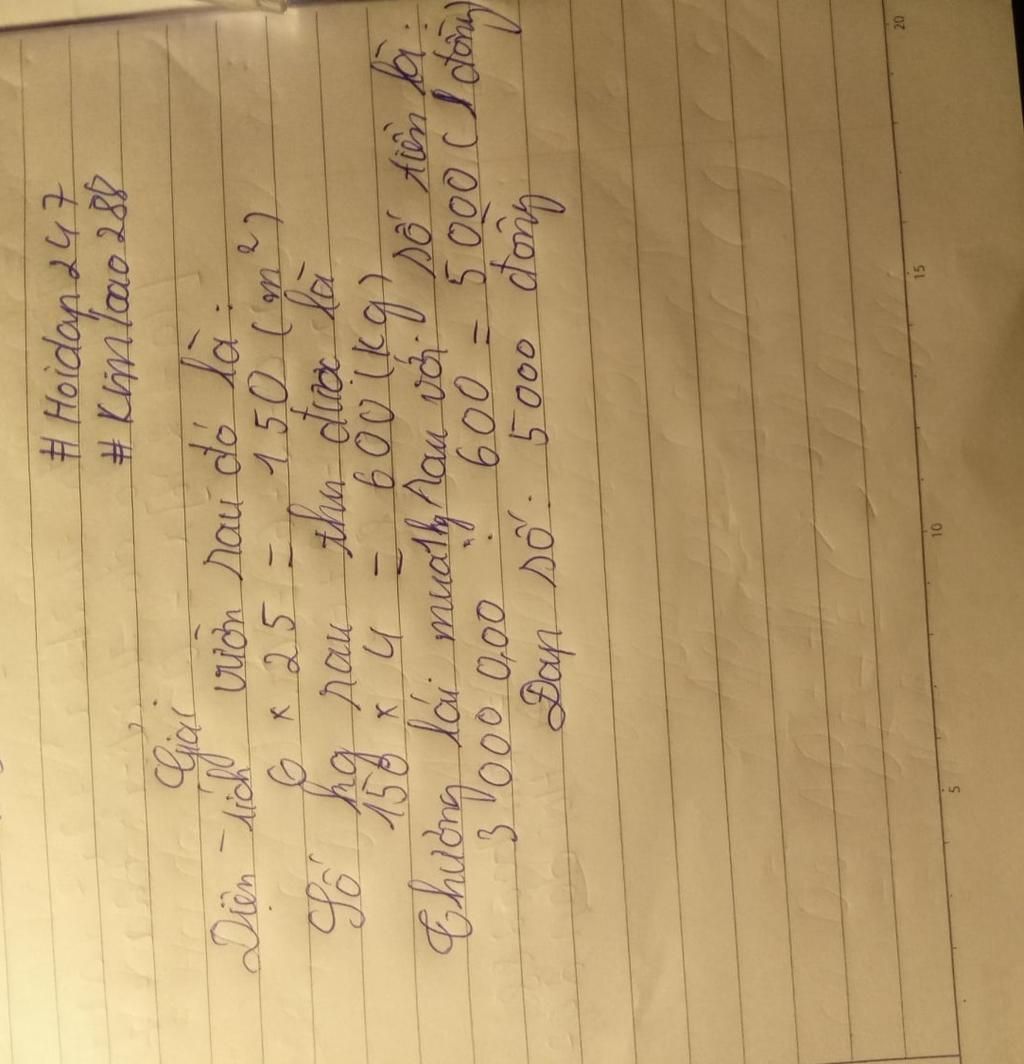 # Hoidap 247
# Kimloao 288
Giải
Diện tích vườn rau đó là:
6 x 25 = 150 (m²)
Số kg rau thu được là
150 x 4 = 600 (kg)
Thương lái mua 1kg rau với số tiền là:
3 000 000 : 600 = 5 000 (đồng)
Đáp số: 5000 đồng
5
10
15
20